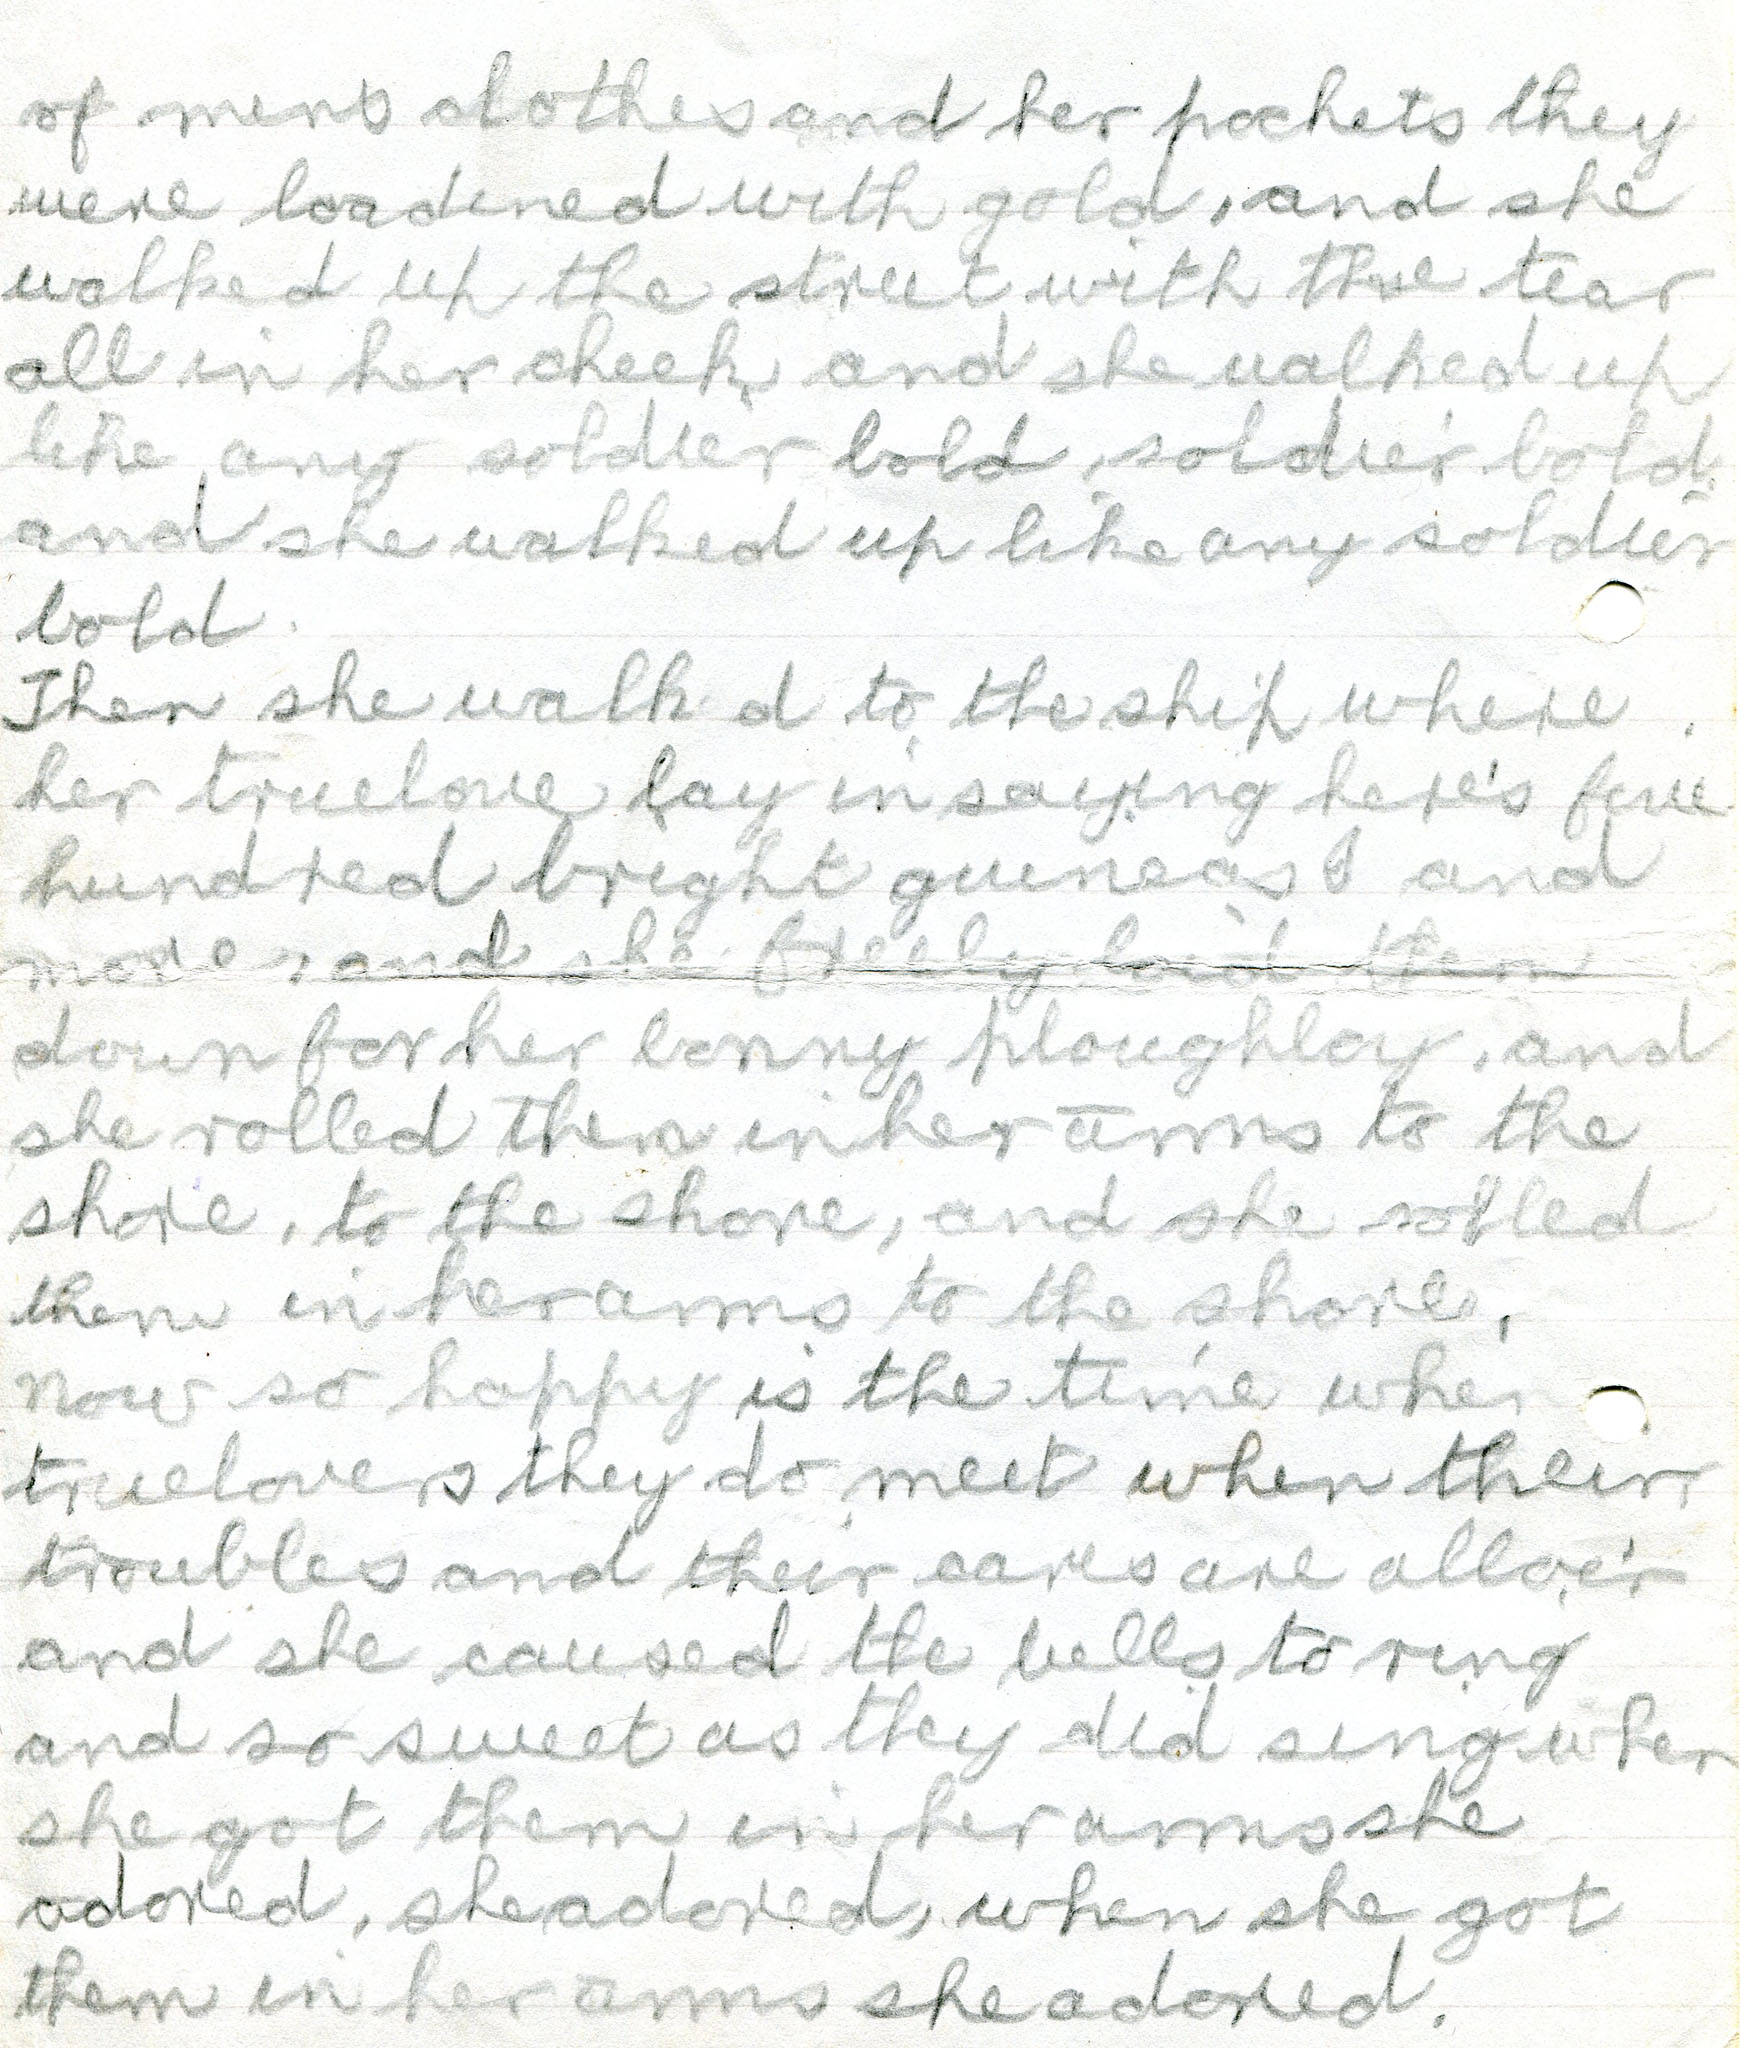 of men's clothes and her pockets they
were loadened with gold, and she
walked up the street with the tear
all in her cheek, and she walked up
like any soldier bold, soldier bold
and she walked up like any soldier
bold.
Then she walked to the ship where
her truelove lay in saying here's five
hundred bright guineas & and
more, and she freely laid them
down for her bonny ploughboy, and
she rolled them in her arms to the
shore, to the shore, and she rolled
them in her arms to the shore,
now so happy is the time when
truelovers they do meet when their
troubles and their cares are all o'er
and she caused the bells to ring
and so sweet as they did sing when
she got them in her arms she
adored, she adored, when she got
them in her arms she adored.